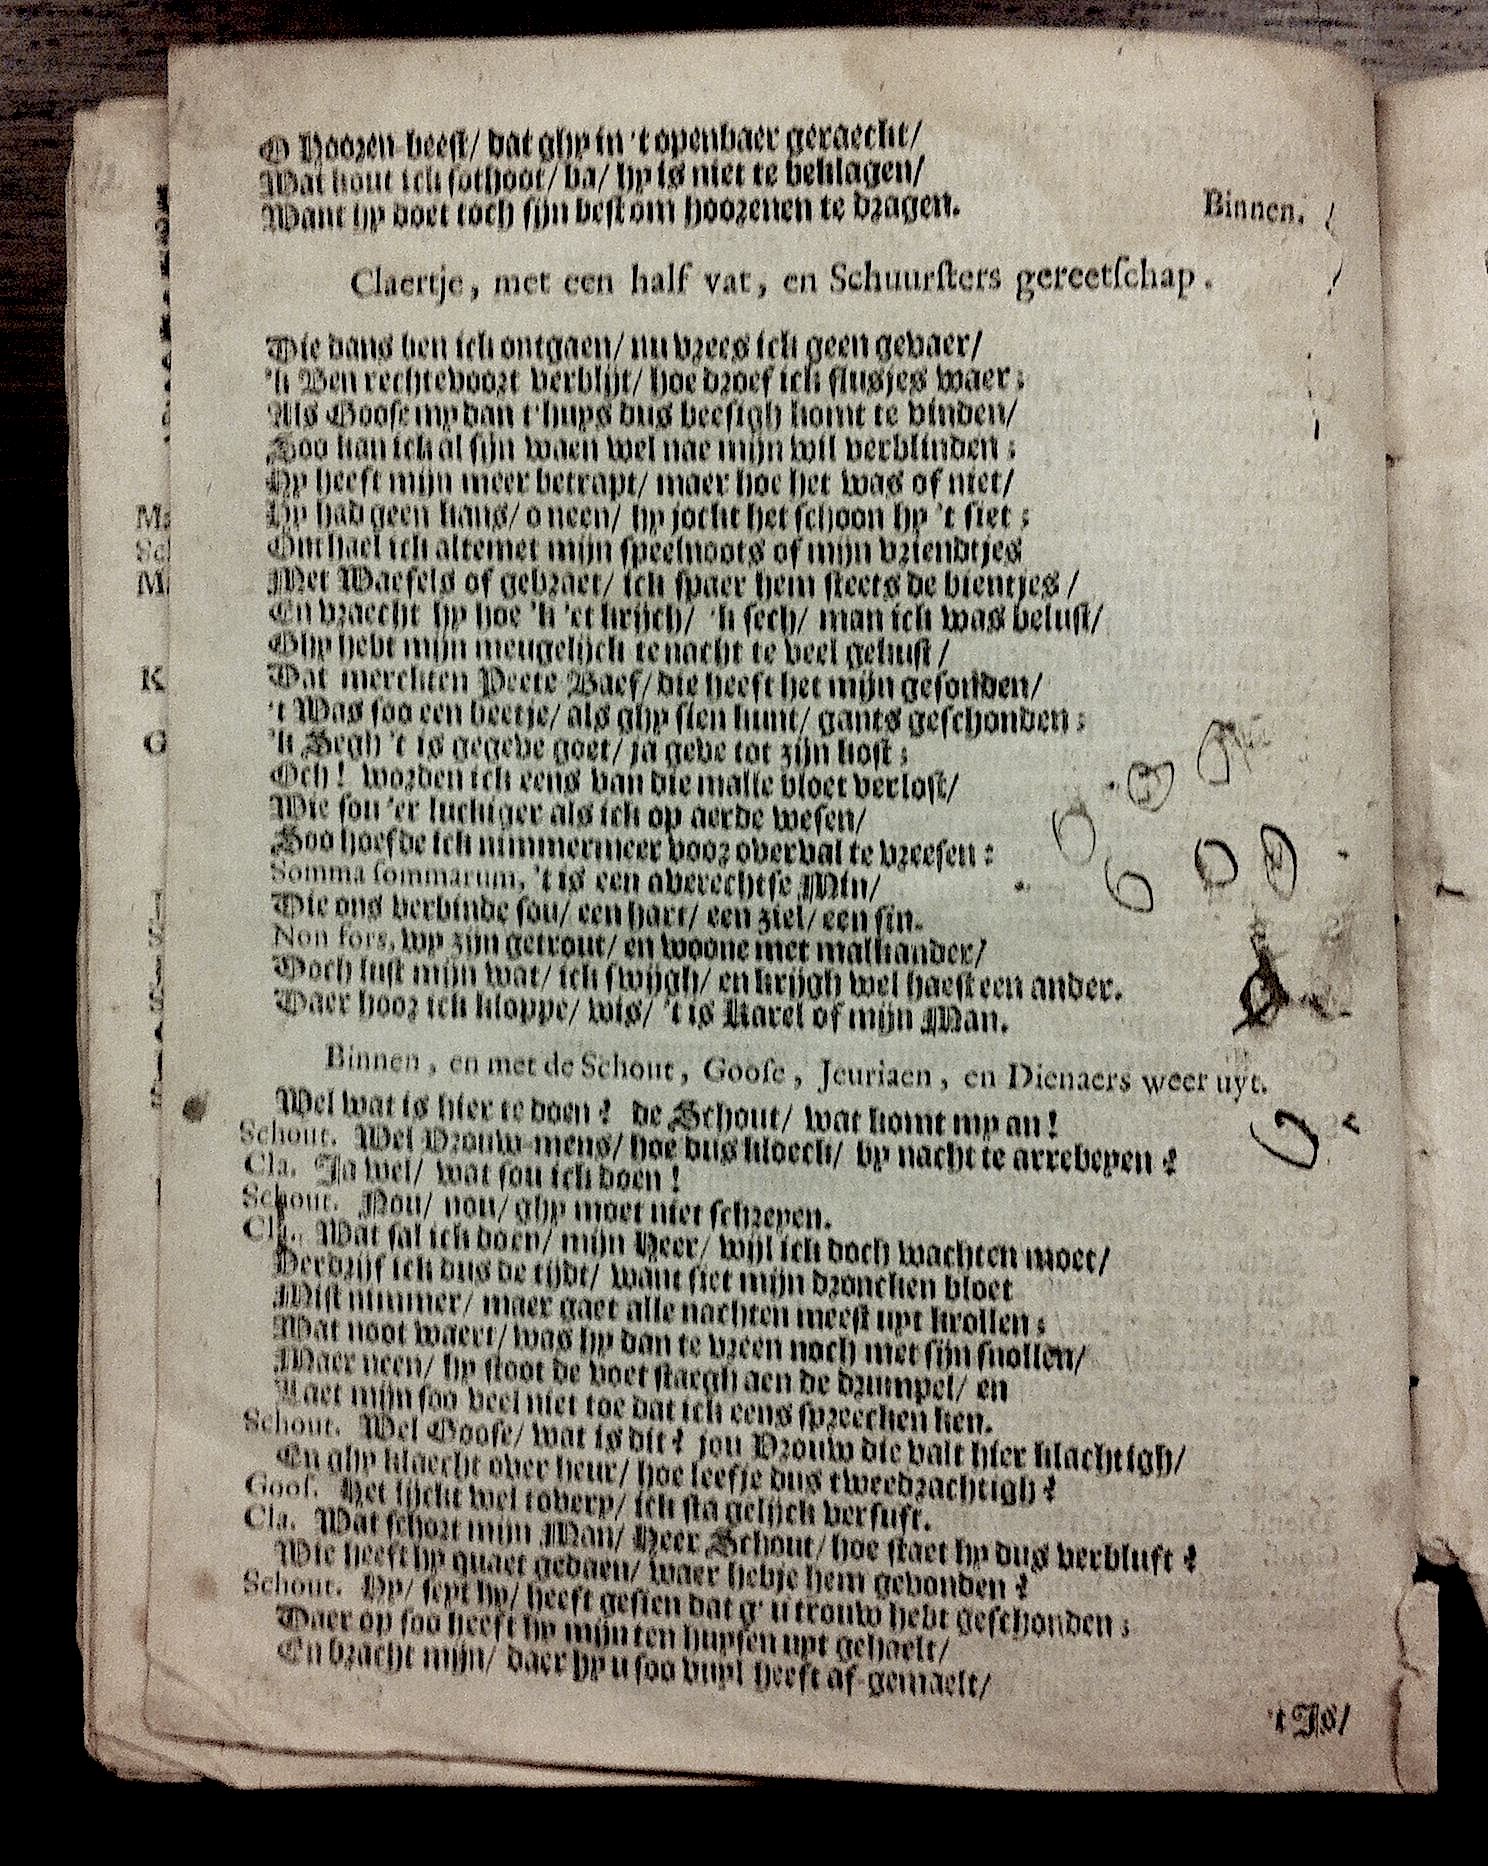 O Hoozen-beest/ dat ghy in 't openbaer geraecht/
Wat hout ick sothoot/ ba/ hy is niet te beklagen/
Want hy doet toch sijn best om hoozenen te dragen.
Binnen.
Claertje, met een half vat, en Schuursters gereetschap.
Die dans ben ick ontgaen/ nu vrees ick geen gevaer/
'k Ben rechtevoort verblijt/ hoe droef ick flusjes waer;
Als Goose my dan t'huys dus beesigh komt te vinden/
Soo kan ick al sijn waen wel nae mijn wil verblinden;
Hy heeft mijn meer betrapt/ maer hoe het was of niet/
Hy had geen kans/ o neen/ hy jockt het schoon hy 't siet;
Onthael ick altemet mijn speelnoots of mijn vriendtjes
Met Waefels of gebraet/ ick spaer hem steets de bientjes/
En vraecht hy hoe 'k 'et krijch/ 'k sech/ man ick was belust/
Ghy hebt mijn meugelijck te nacht te veel gekust/
Dat merckten Peete Baef/ die heeft het mijn gesonden/
't Was soo een beetje/ als ghy sien kunt/ gants geschonden;
'k Segh 't is gegeve goet/ ja geve tot zijn kost;
Och! worden ick eens van die malle bloet verlost/
Wie sou 'er luckiger als ick op aerde wesen/
Soo hoefde ick nimmermeer voor overval te vreesen:
Somma sommarum, 't is een averechtse Min/
Die ons verbinde sou/ een hart/ een ziel/ een sin.
Non fors, wy zijn getrout/ en woone met malkander/
Doch lust mijn wat/ ick swijgh/ en krijgh wel haest een ander.
Daer hoor ick kloppe/ wis/ 't is Karel of mijn Man.
Binnen, en met de Schout, Goose, Jeuriaen, en Dienaers weer uyt.
Wel wat is hier te doen? de Schout/ wat komt my an!
Schout. Wel Vrouw-mens/ hoe dus kloeck/ by nacht te arrebeyen?
Cla. Ja wel/ wat sou ick doen!
Schout. Nou/ nou/ ghy moet niet schreyen.
Cla. Wat sal ick doen/ mijn Heer/ wijl ick doch wachten moet/
Verdrijf ick dus de tijdt/ want siet mijn droncken bloet
Mist nimmer/ maer gaet alle nachten meest uyt krollen;
Wat noot waert/ was hy dan te vreen noch met sijn snollen/
Maer neen/ hy stoot de voet staegh aen de drumpel/ en
Laet mijn soo veel niet toe dat ick eens spreecken ken.
Schout. Wel Goose/ wat is dit? jou Vrouw die valt hier klachtigh/
En ghy klaecht over heur/ hoe leefje dus tweedrachtigh?
Goos. Het lijckt wel tovery/ ick sta gelijck versuft.
Cla. Wat schort mijn Man/ Heer Schout/ hoe staet hy dus verbluft?
Wie heeft hy quaet gedaen/ waer hebje hem gevonden?
Schout. Hy/ seyt hy/ heeft gesien dat g' u trouw hebt geschonden;
Daer op soo heeft hy mijn ten huysen uyt gehaelt/
En bracht mijn/ daer hy u soo vuyl heeft af-gemaelt/
't Is/